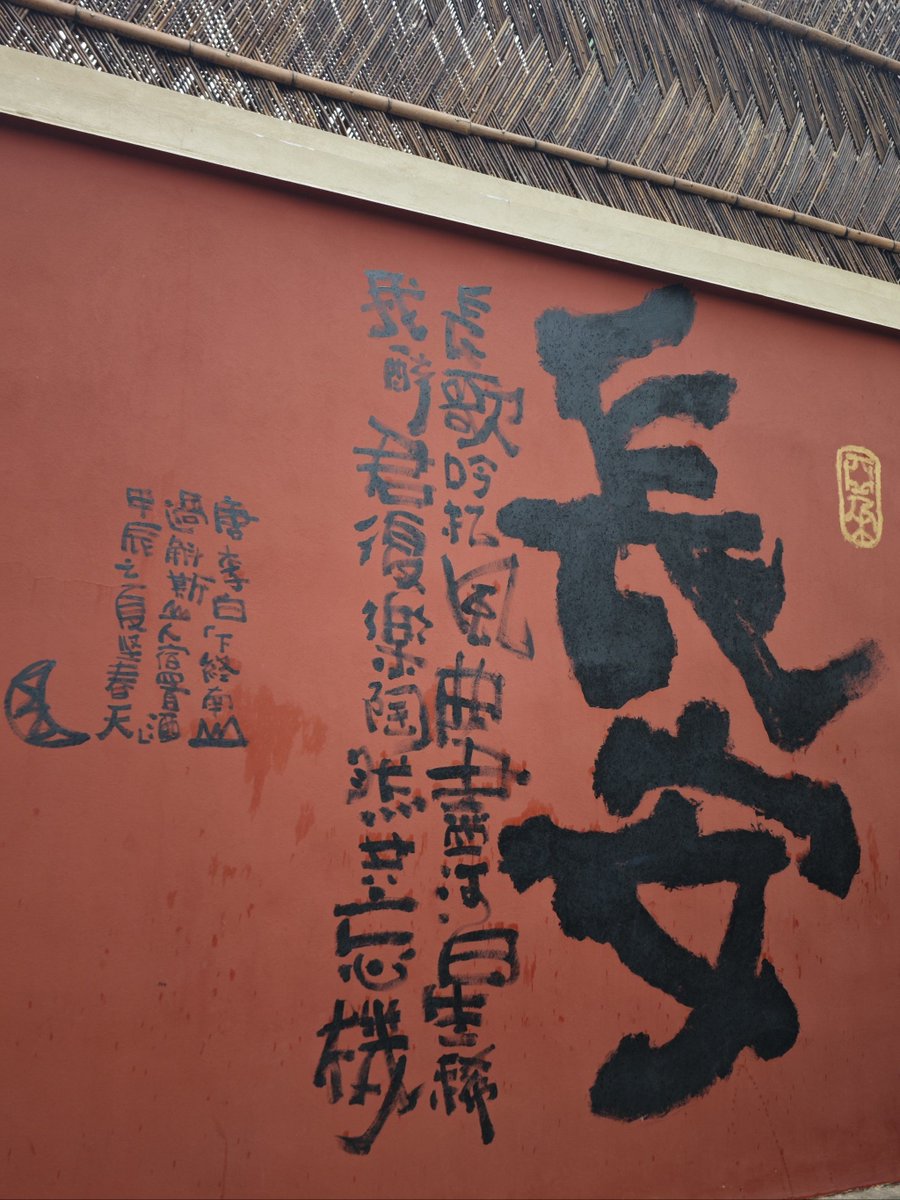 長安
長歌吟松風曲盡河星稀
我醉君復樂陶然共忘機
唐李白「下終南山
過斛斯山人宿置酒」
甲辰之夏春天